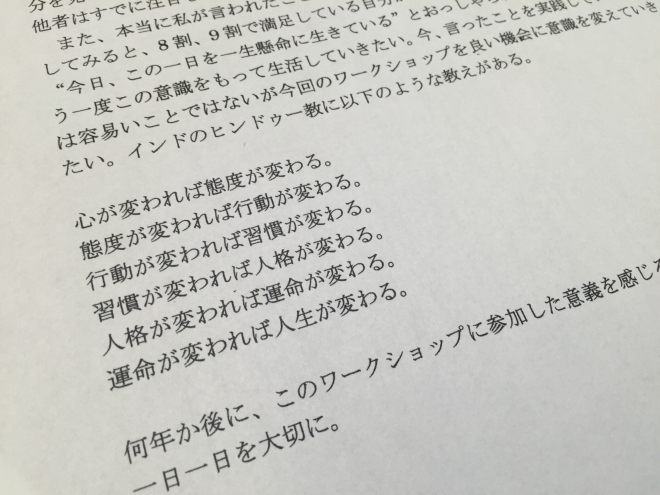 他者はすでに注目
また、本当に私が言われたこ
してみると、8割、9割で満足している自分が
“今日、この一日を一生懸命に生きている”とおっしゃら
う一度この意識をもって生活していきたい。今、言ったことを実践して
は容易いことではないが今回のワークショップを良い機会に意識を変えていき
たい。インドのヒンドゥー教に以下のような教えがある。
心が変われば態度が変わる。
態度が変われば行動が変わる。
行動が変われば習慣が変わる。
習慣が変われば人格が変わる。
人格が変われば運命が変わる。
運命が変われば人生が変わる。
何年か後に、このワークショップに参加した意義を感じ
一日一日を大切に。